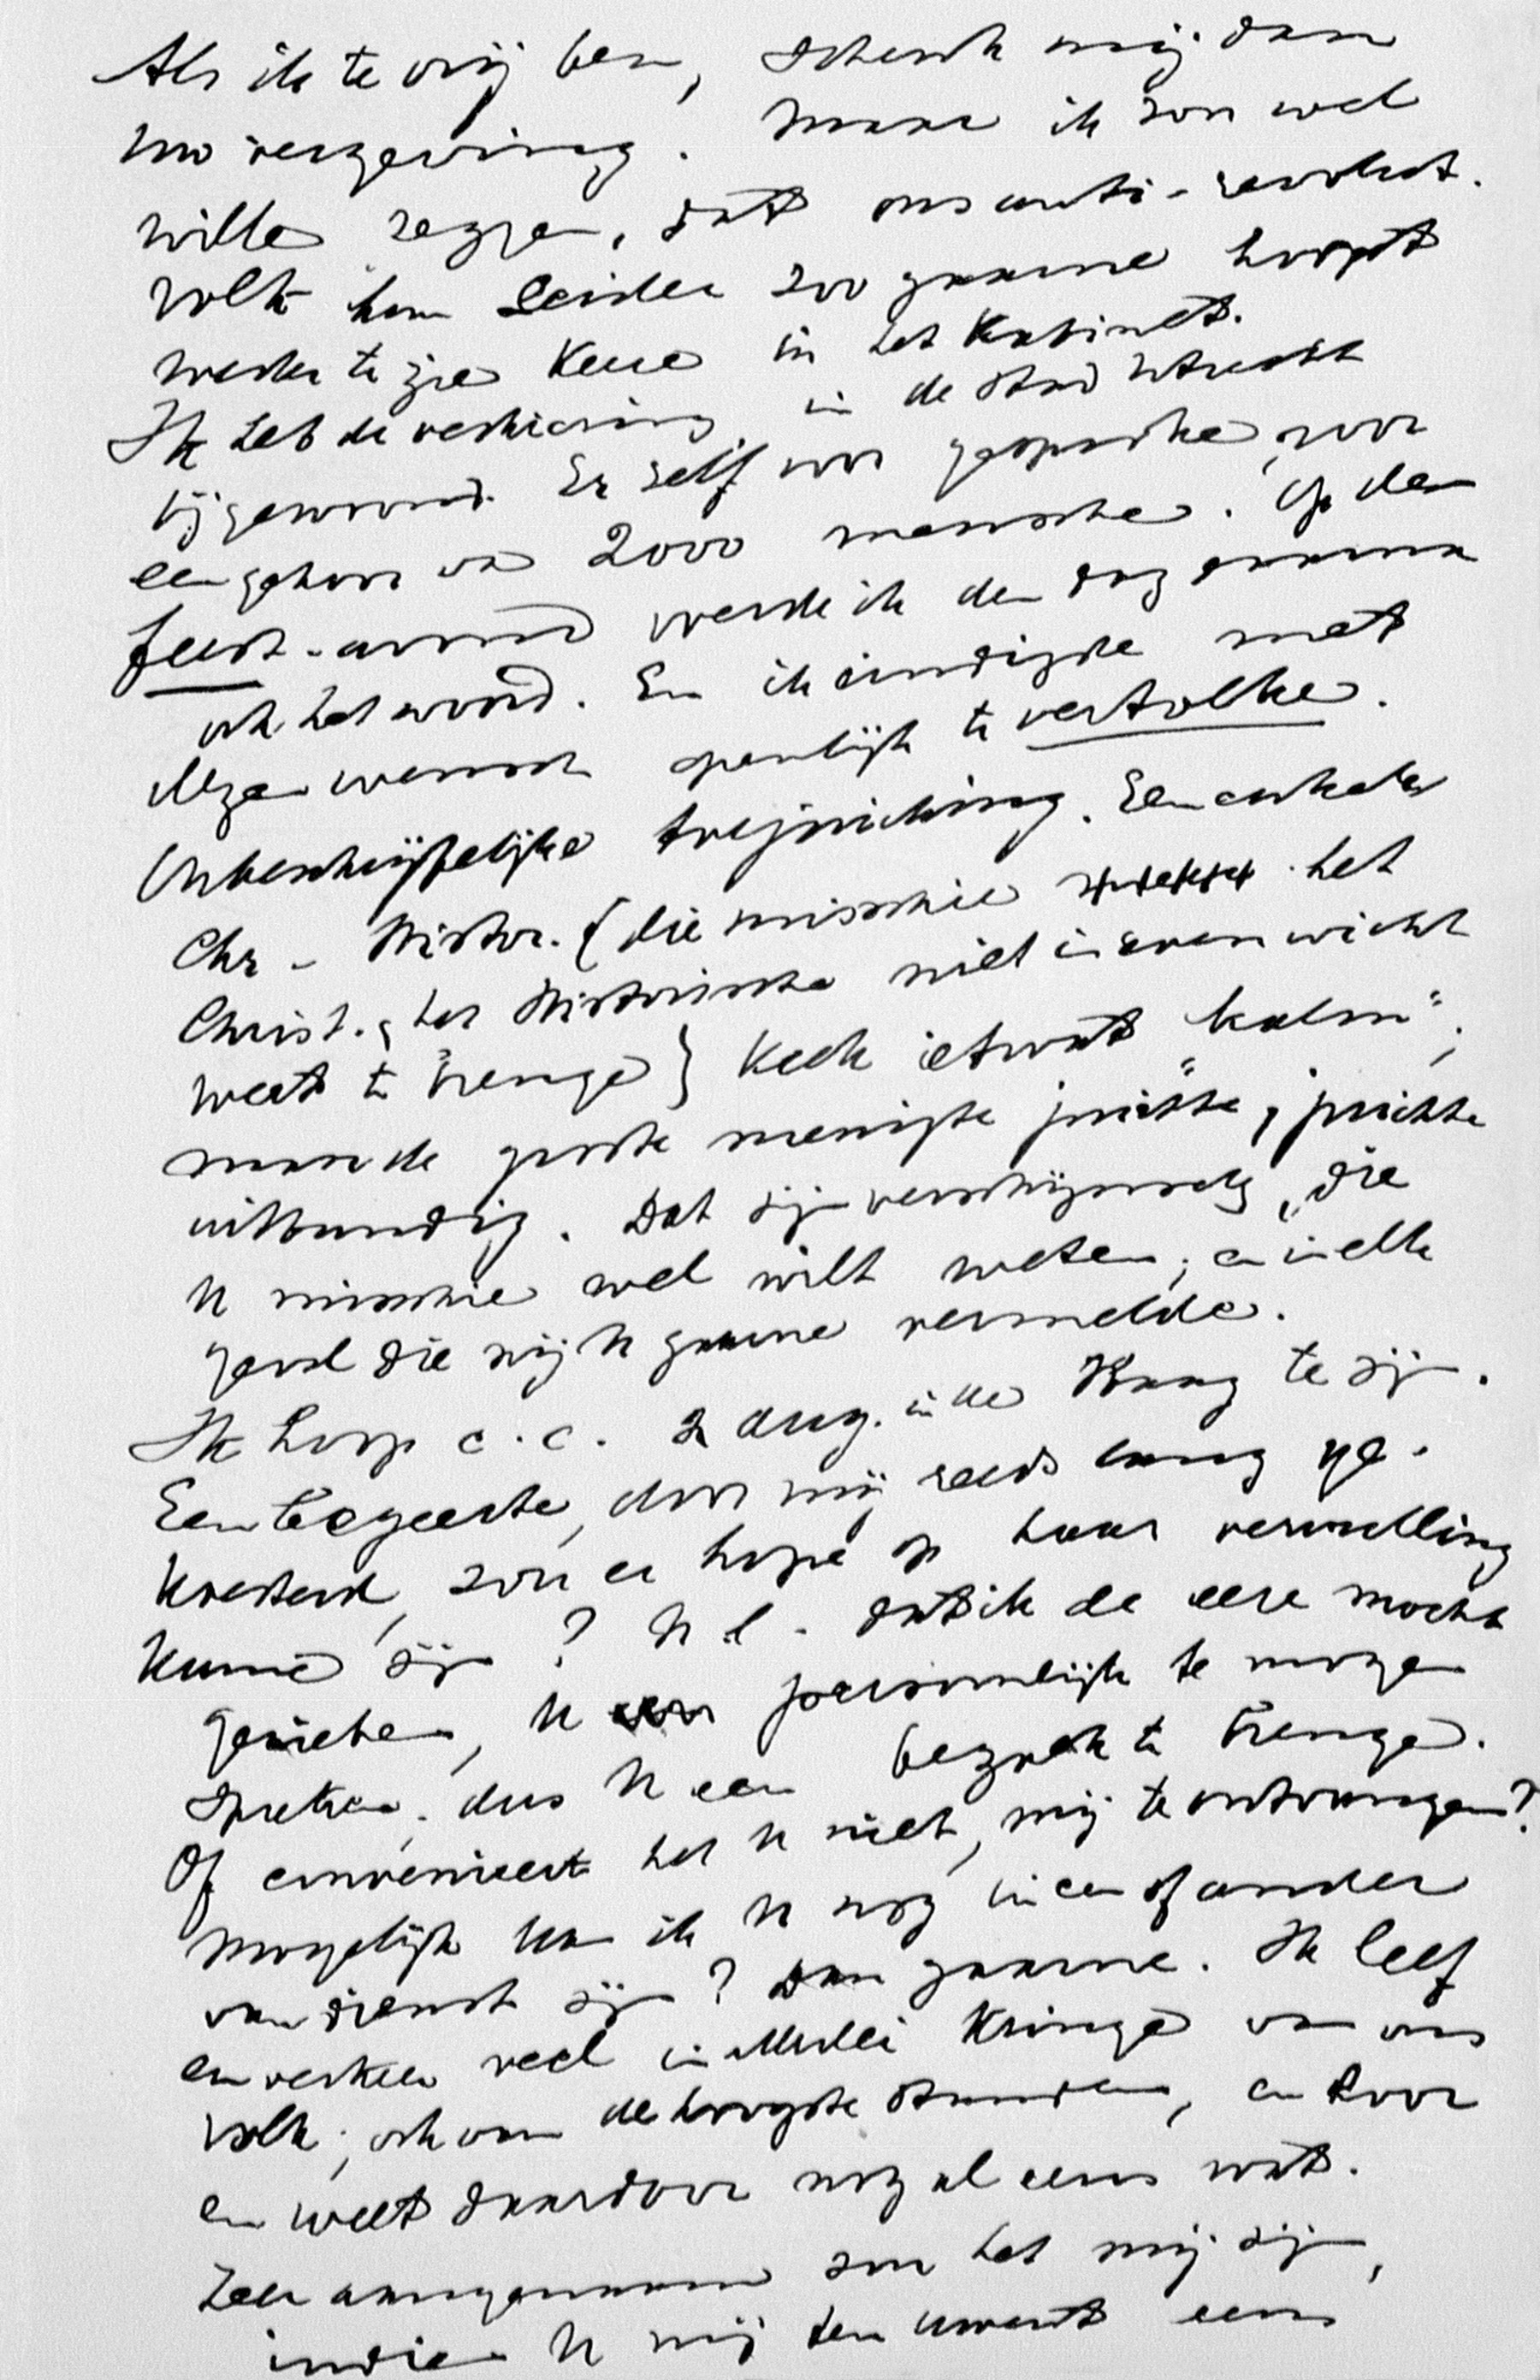 Als ik te vrij ben, schenk mij dan
Uw vergeving. Maar ik zou wel
willen zeggen, dat ons anti-revolut.
volk hun Leider zoo gaarne hoopt
weder te zien keeren in het Kabinet.
Ik heb de verkiezing in de stad Utrecht
bijgewoond. Er zelf voor gesproken, voor
een gehoor van 2000 menschen. Op den
feest-avond voerde ik den dag daarna
ook het woord. En ik eindigde met
dezen wensch openlijk te vertolken.
Onbeschrijfelijke toejuiching. Een enkele
Chr.- Histor. (die misschien het
Christ. & het Historische niet in evenwicht
weet te brengen) keek ietwat "kalm";
maar de groote menigte juichte, juichte
uitbundig. Dat zijn verschijnselen, die
U misschien wel wilt weten; en in elk
geval die wij U gaarne vermelden.
Ik hoop c.c. 2 Aug. in den Haag te zijn.
Een begeerte, door mij reeds lang ge-
koesterd, zou er hope op haar vervulling
kunnen zijn? N.l. dat ik de eere mocht
genieten, U persoonlijk te mogen
spreken, dus U een bezoek te brengen.
Of convenieert het U niet, mij te ontvangen?
Mogelijk kan ik U nog in een of ander
van dienst zijn? Dan gaarne. Ik leef
en verkeer veel in allerlei kringen van ons
volk; ook van de hoogste standen, en hoor
en weet daardoor nog al eens wat.
Zeer aangenaam zou het mij zijn,
indien U mij ten Uwent eens